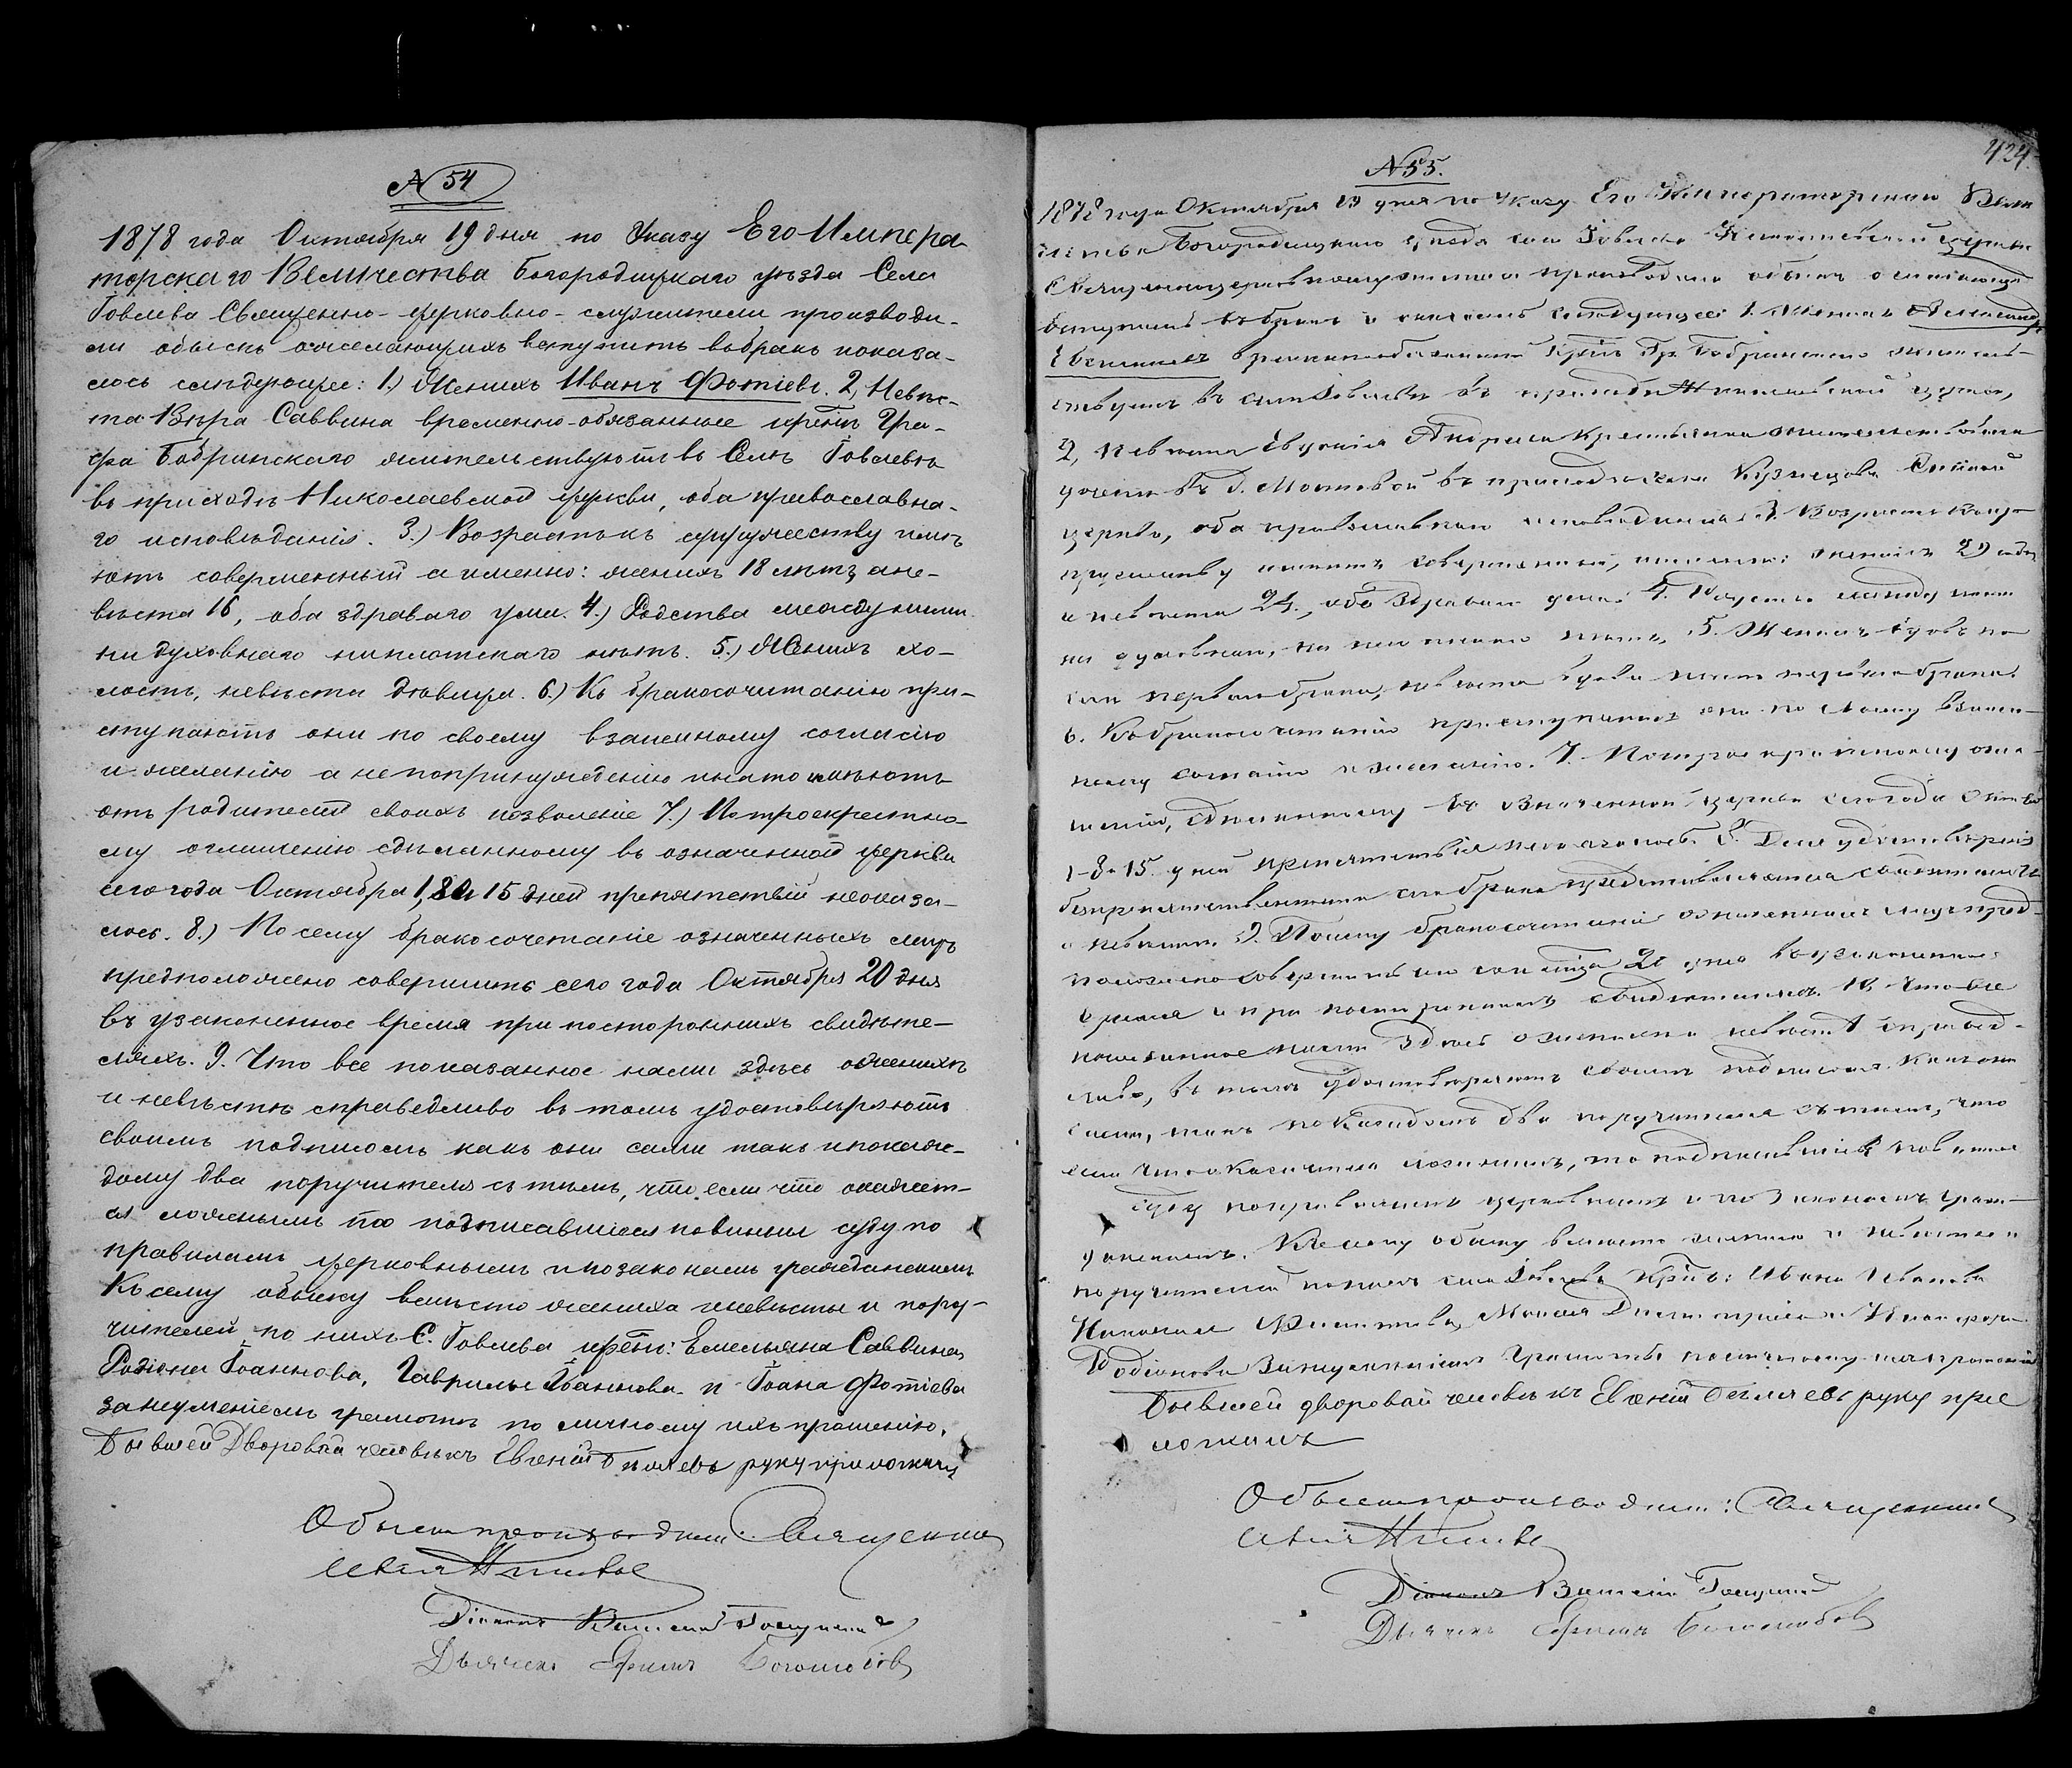 N 54
1878 года Октября 19 дня по Указу Его Импера-
торскаго Величества Богородицкаго уѣзда Села
Говлева Священно-церковно-служители производи-
ли обыскъ о желающихъ вступить въ бракъ и оказа-
лось слѣдующее: 1.) Женихъ Иванъ Фотіевъ. 2, Невѣс-
та Вѣра Саввина временно-обязанные крест. Гра-
фа Бобринскаго жительствуютъ въ Селѣ Говлевѣ
въ приходѣ Николаевской церкви, оба православна-
го исповѣданія. 3.) Возрастъ къ супружеству имѣ-
ютъ совершенный а именно: женихъ 18 лѣтъ, а не-
вѣста 16, оба здраваго ума. 4.) Родства между ними
ни духовнаго ни плотскаго нѣтъ. 5.) Женихъ хо-
лостъ, невѣста дѣвица. 6.) Къ бракосочитанію при-
ступаютъ они по своему взаимному согласію
и желанію а не по принужденію и на то имѣютъ
отъ родителей своихъ позволеніе 7.) По троекратно-
му оглашенію сдѣланному въ означенной церкви
сего года Октября 1, 8 и 15 дней препятствій не оказа-
лось. 8.) Посему бракосочетаніе означенныхъ лицъ
предположено совершить сего года Октября 20 дня
въ узаконенное время при постороннихъ свидѣте-
ляхъ. 9. Что все показанное нами здѣсь о женихѣ
и невѣстѣ справедливо въ томъ удостовѣряютъ
своимъ подписомъ какъ они сами такъ и по каж-
дому два поручителя съ тѣмъ, что если что окажет-
ся ложнымъ то подписавшіеся повинны суду по
правиламъ церковнымъ и по законамъ гражданскимъ
Къ сему обыску вмѣсто жениха и невѣсты и пору-
чителей по нихъ С. Говлева крест: Емельяна Саввина,
Родіона Іоаннова, Гаврилы Іоаннова и Іоана Фотіева
за неумѣніемъ грамотѣ по личному ихъ прошенію,
Бывшей Дворовай человѣкъ Евгеній руку приложилъ
Обыскъ производили: Священникъ
Діаконъ Василій
Дьячекъ Ефимъ Боголюбовъ
424
N 55.
1878 года Октября 19 дня по Указу Его Императорскаго Вели
чества Богородицкаго уѣзда села Говлева Николаевской церкви
Священноцерковнослужители производили обыскъ о желающихъ
вступить въ бракъ и оказалось слѣдующее: 1. Женихъ Александръ
временнообязанный крест. Гр. Бобринскаго житель-
ствуетъ въ селѣ Говлевѣ въ приходѣ Николаевской церкви,
2, Невѣста Евдокія Андреева крестьянка жительствовала
въ д. въ приходѣ села
церкви, оба православнаго исповѣданія. 3. Возрастъ къ су-
пружеству имѣютъ совершенный, именно: женихъ 29 лѣтъ
а невѣста 24, оба здраваго ума. 4. Родства между ними
ни духовнаго, ни плотскаго нѣтъ, 5. Женихъ вдовъ по
слѣ перваго брака, невѣста вдова послѣ перваго брака.
6. Къ бракосочетанію приступаютъ они по своему взаим-
ному согласію и желанію. 7. По троекратному огла-
шенію, сдѣланному въ означенной церкви сего года Октября
1-8-15. дней препятствія не оказалось 8. Для удостовѣренія
безпрепятственности сего брака представляются
о невѣстѣ. 9. Посему бракосочетаніе означенныхъ лицъ пред-
положено совершить сего мѣсяца 20 дня въ узаконенное
время и при постороннихъ свидѣтеляхъ. 10, Что все
показанное нами здѣсь о женихѣ и невѣстѣ справед-
ливо, въ томъ удостовѣряютъ своимъ подписомъ какъ они
сами, такъ по каждомъ два поручителя съ тѣмъ, что
если что окажется ложнымъ, то подписавшіеся повинны
суду по правиламъ церковнымъ и по законамъ граж-
данскимъ. Къ сему обыску вмѣсто жениха и невѣсты и
поручителей по нихъ села Говлева крест: Ивана Иванова
Николая Филиппова, Моисея Дмитріева и Никифора
Родіонова за неумѣніемъ грамотѣ по личному ихъ прошенію
Бывшей дворовай человѣкъ Евгеній руку при
ложилъ
Обыскъ производили: Священникъ
Діаконъ Василій
Дьячекъ Ефимъ Боголюбовъ